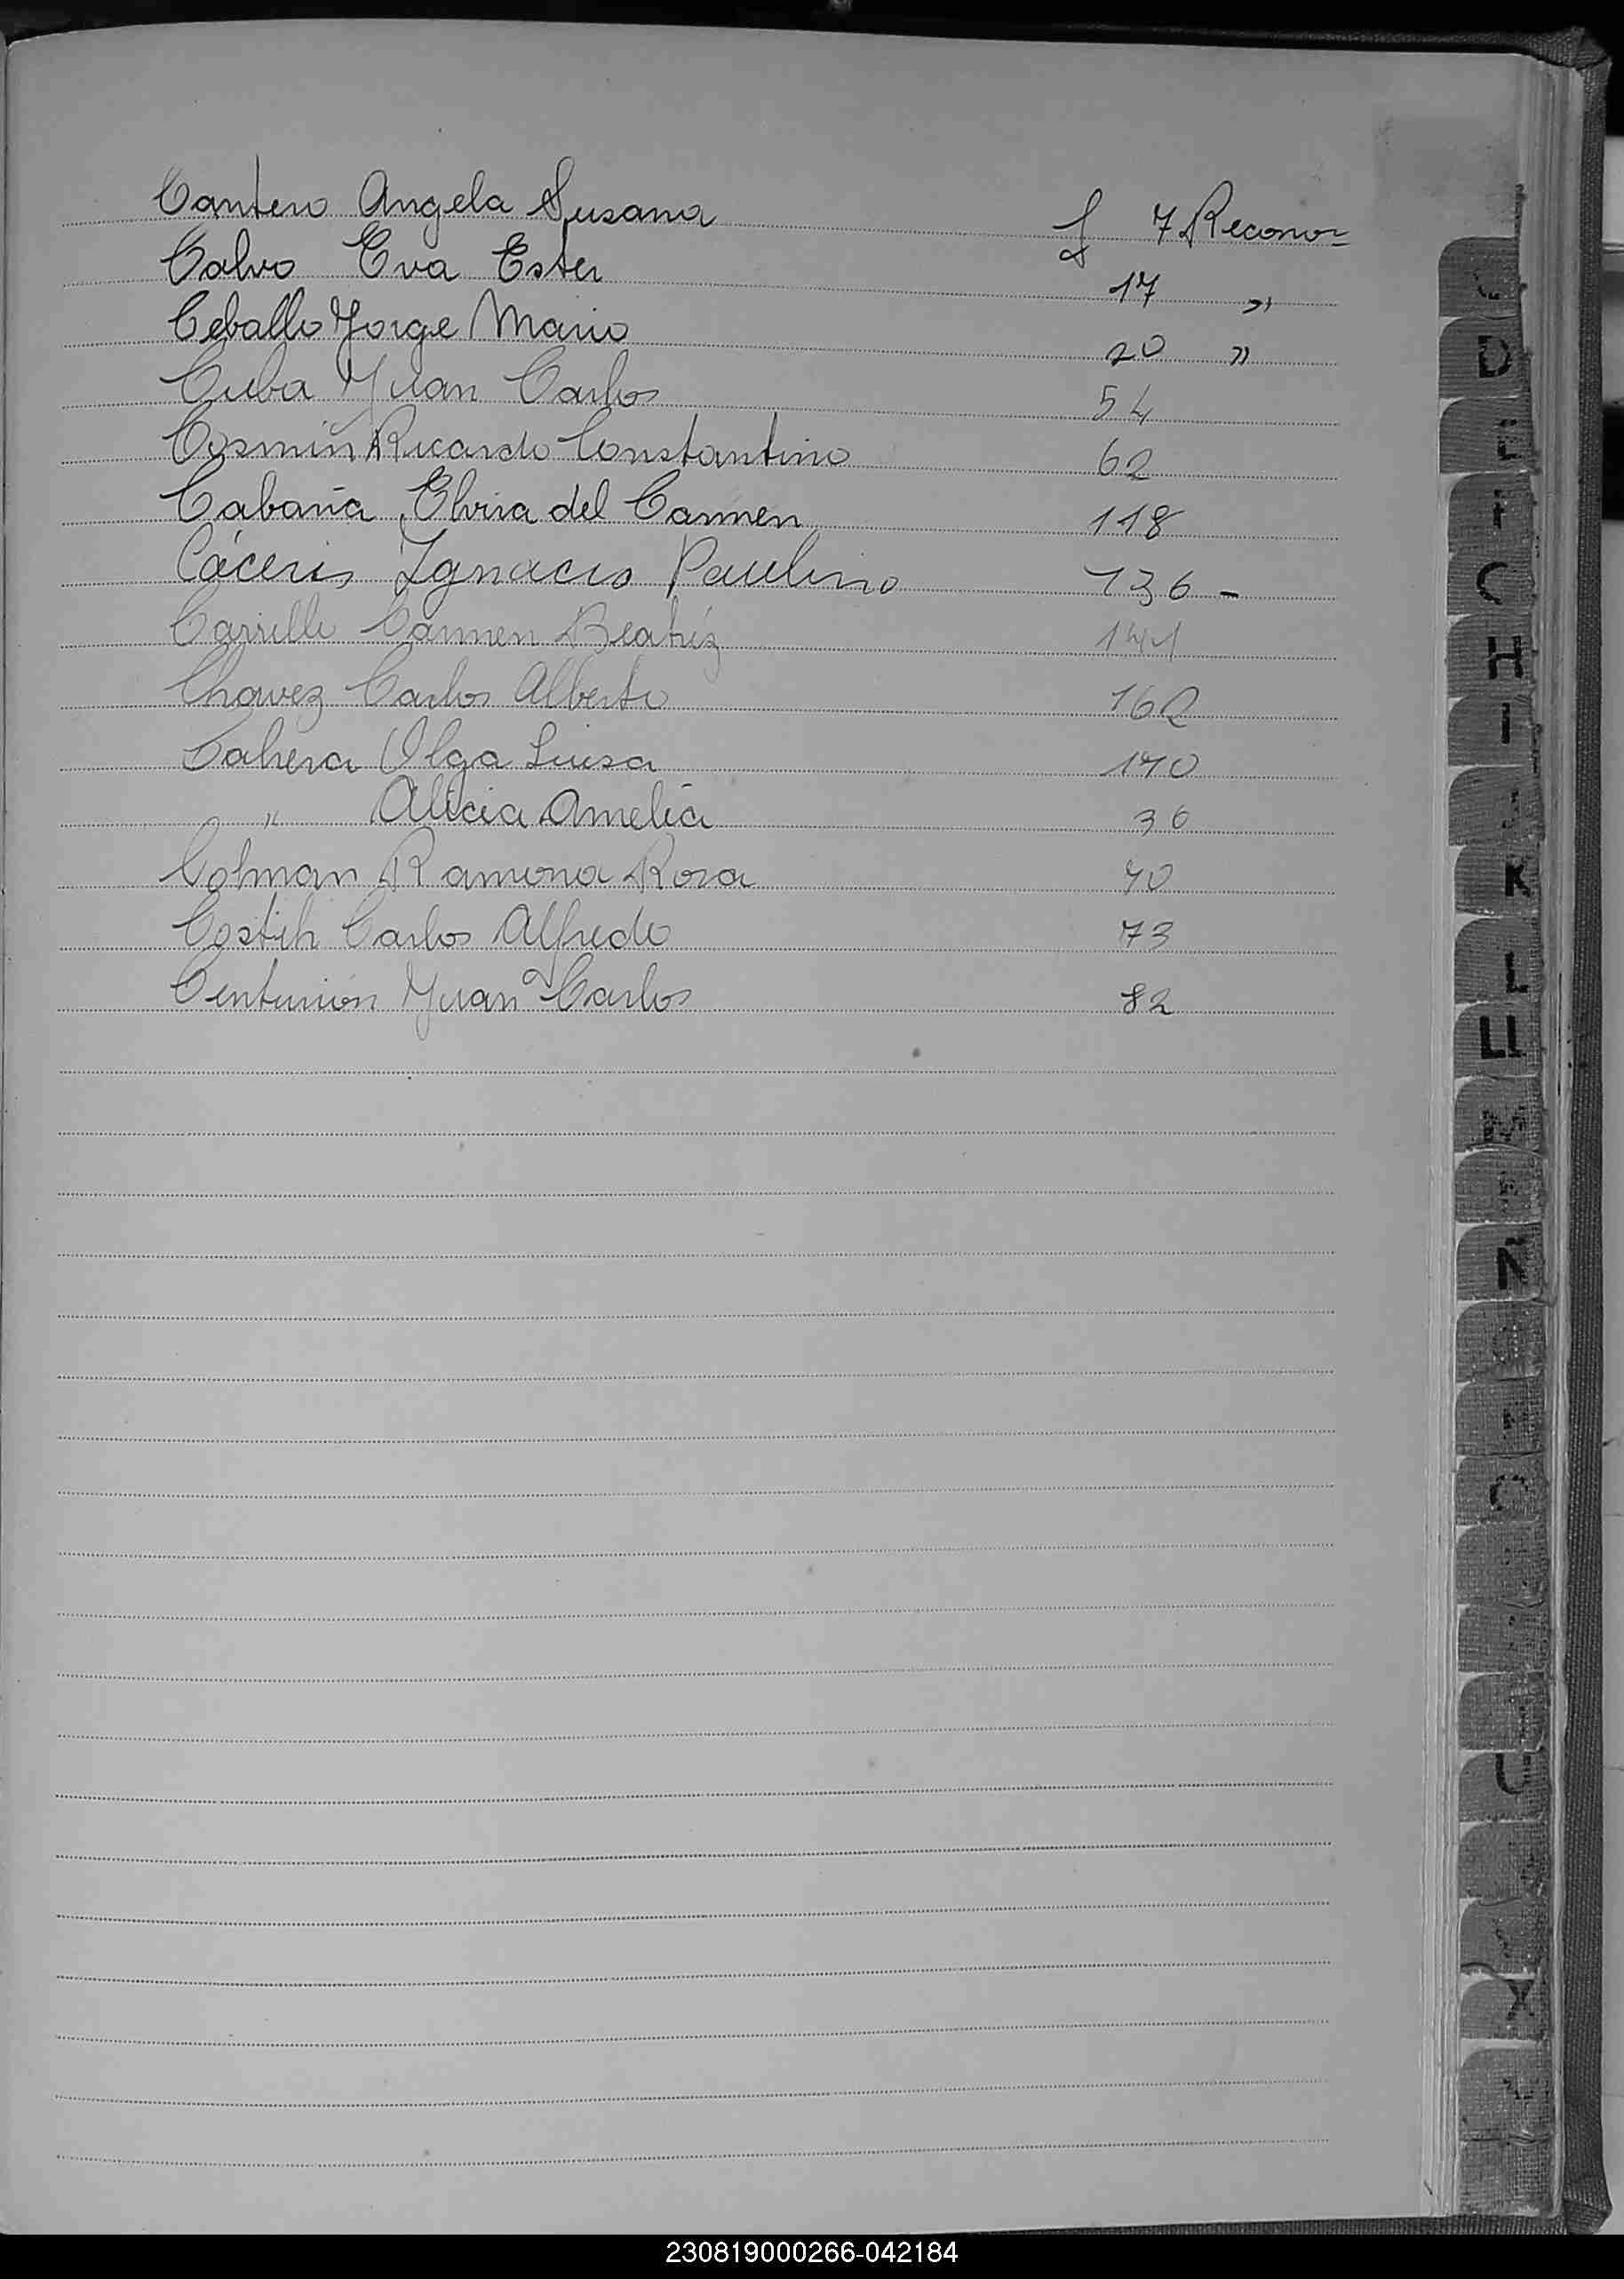 Cantero Angela Susana f 7 Recono=
Calvo Eva Ester 17 "
Ceballo Jorge Mario 20 "
Cuba Juan Carlos 54
Cosmin Ricardo Constantino 62
Cabaña Elvira del Carmen 118
Cáceres Ignacio Paulino 136 -
Carrillo Carmen Beatríz 141
Chavez Carlos Alberto 162
Olga Luisa 170
" Alicia Amelia 36
Colman Ramona Rosa 40
Carlos Alfredo 73
Centurión Juan Carlos 82
D
C
H
I
K
L
LL
Ñ
U
X
Y
230819000266-042184